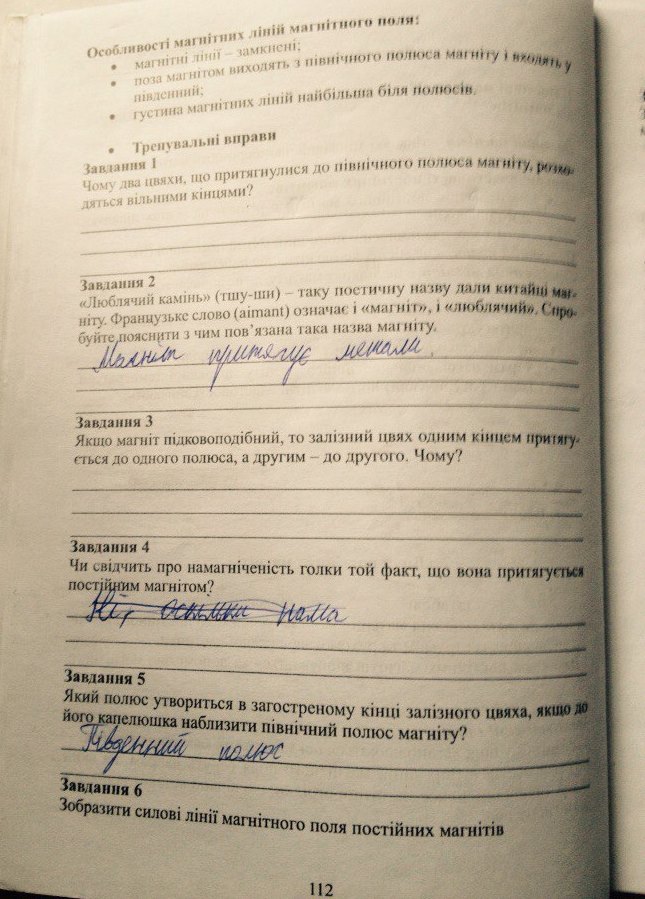 Особливості магнітних ліній магнітного поля:
• магнітні лінії – замкнені;
• поза магнітом виходять з північного полюса магніту і входять у
південний;
• густина магнітних ліній найбільша біля полюсів.
• Тренувальні вправи
Завдання 1
Чому два цвяхи, що притягнулися до північного полюса магніту, розхо-
дяться вільними кінцями?
Завдання 2
«Люблячий камінь» (тшу-ши) – таку поетичну назву дали китайці маг-
ніту. Французьке слово (aimant) означає і «магніт», і «люблячий». Спро-
буйте пояснити з чим пов’язана така назва магніту.
Магніт притягує метали.
Завдання 3
Якщо магніт підковоподібний, то залізний цвях одним кінцем притягу-
ється до одного полюса, а другим – до другого. Чому?
Завдання 4
Чи свідчить про намагніченість голки той факт, що вона притягується
постійним магнітом?
Ні, оскільки нама
Завдання 5
Який полюс утвориться в загостреному кінці залізного цвяха, якщо до
його капелюшка наблизити північний полюс магніту?
Південний полюс
Завдання 6
Зобразити силові лінії магнітного поля постійних магнітів
112